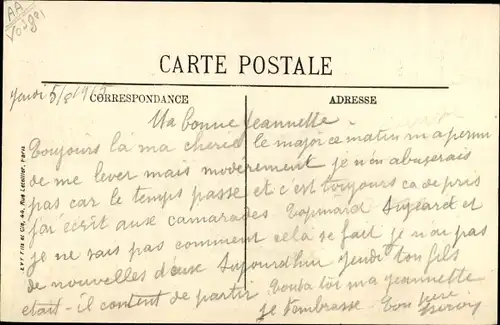 AA
Vosges
CARTE POSTALE
Jeudi 5/8/1915
CORRESPONDANCE
ADRESSE
Ma bonne Jeannette.
Toujours là ma cherie le major ce matin m a permi
de me lever mais modérement je n'en abuserais
pas car le temps passe et c'est toujours ca de pris
j'ai ecrit aux camarades et
je ne sais pas comment cela se fait je n ai pas
de nouvelles d'eux Aujourdhui Jeudi ton fils
etait-il content de partir toi ma Jeannette
je t'embrasse Ton
LVY Fils et Cie, 44, Rue Letellier, Paris